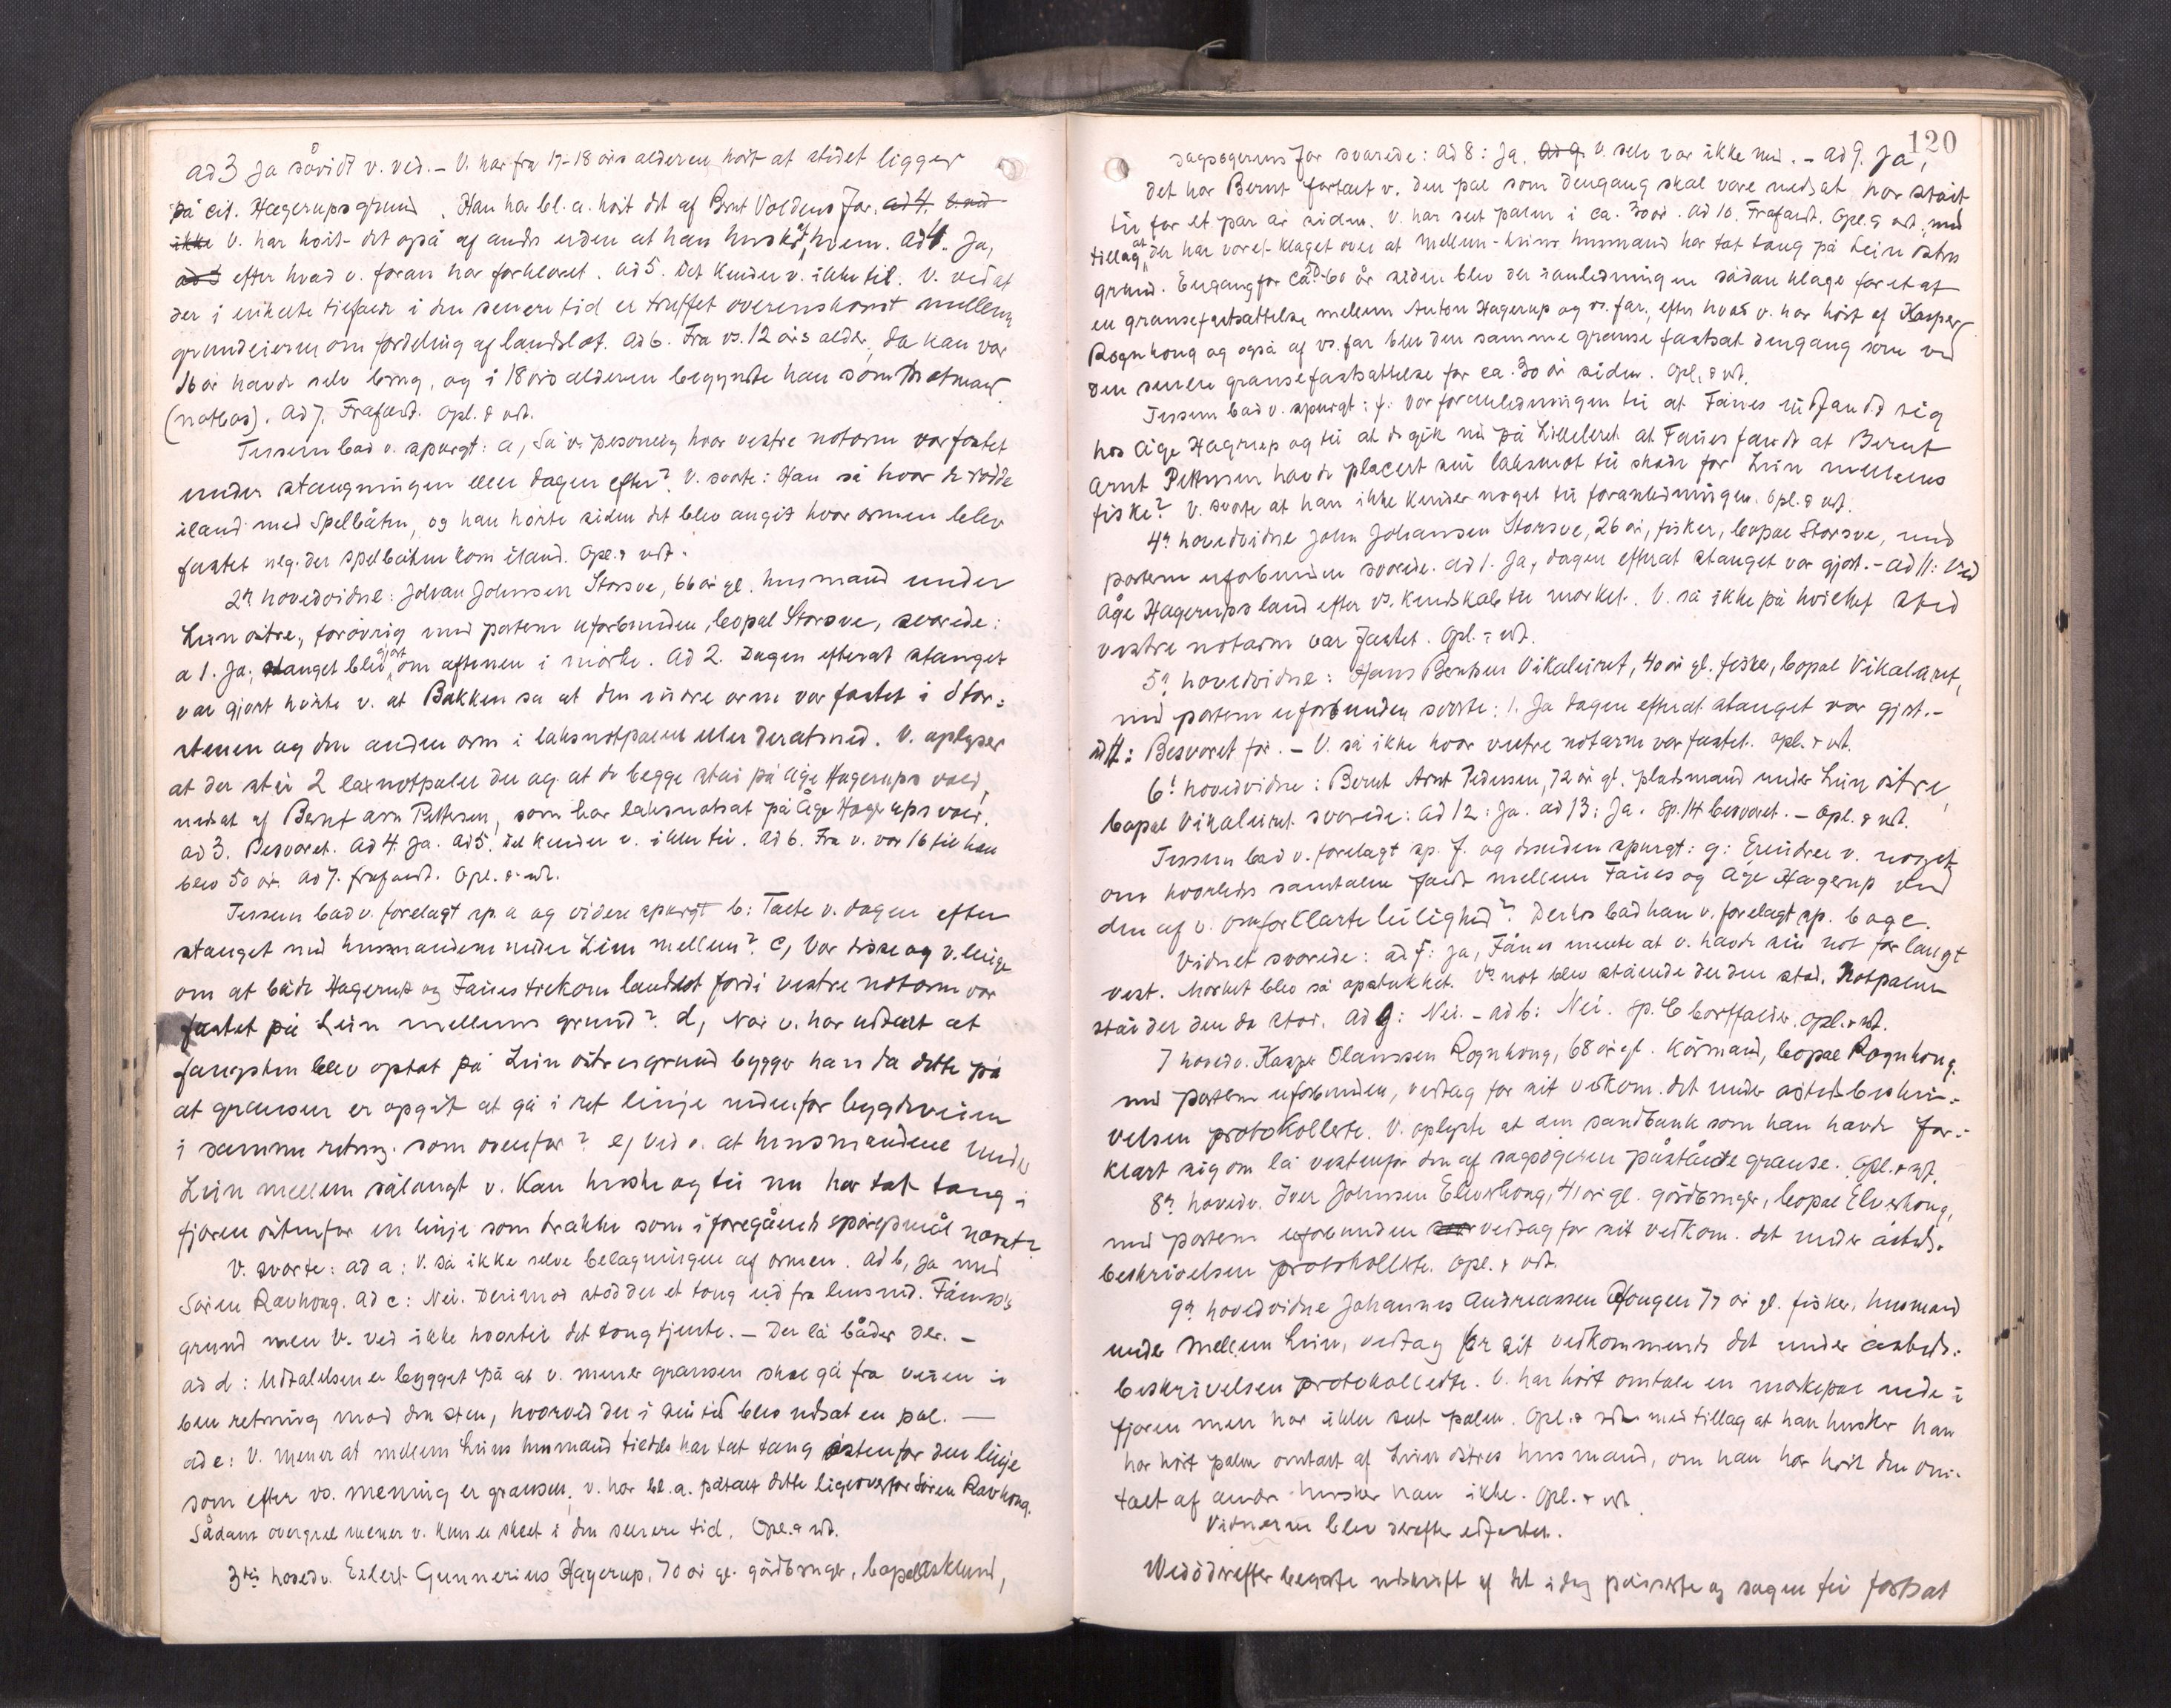 ad 3 Ja såvidt v. ved. - V. har fra 17-18 års alderen hørt at stedet ligger
på cit. Hagerups grund. Han har bl. a. hørt det af Bernt Voldens far. ad 4.
ikke V. har hørt det også af andre uden at han husker af hvem. ad 4. Ja,
ad 5 efter hvad v. foran har forklaret. ad 5. Det kender v. ikke til. V. ved at
der i enkelte tilfælde i den senere tid er truffet overenskomst mellem
grundeierne om fordeling af landslot. ad 6. Fra vs. 12 års alder, da han var
16 år havde selv brug, og i 18 års alderen begyndte han som notmand
(notbas). ad 7. Frafaldt. Opl. & vedt.
Tessem bad v. spurgt: a, Så v. personlig hvor vestre notarm var fæstet
under stængningen eller dagen efter? V. svarte: Han så hvor de rodde
iland med Spelbåten, og han hørte siden det blev angit hvor armen blev
fæstet nlg. der spelbåten kom iland. Opl. & vedt.
2det hovedvidne: Johan Johnsen Storsve, 66 år gl. husmand under
Lein østre, forøvrig med parterne uforbunden, bopæl Storsve, svarede:
a 1. Ja, stænget blev gjort om aftenen i mørke. Ad 2. Dagen efterat stænget
var gjort hørte v. at Bakken sa at den indre arm var fæstet i Stor-
stenen og den anden arm i laksnotpælen eller deratmed. V. oplyser
at der står 2 laxnotpæler der og at de begge står på Åge Hagerups vold,
nedsat af Bernt Arn Pettersen, som har laksnotsat på Åge Hagerups vold.
ad 3. Besvaret. Ad 4. Ja. Ad 5. Det kender v. ikke til. Ad 6. Fra v. var 16 til han
blev 50 år. Ad 7. frafaldt. Opl. & vedt.
Tessem bad v. forelagt sp. a og videre spurgt b: Talte v. dagen efter
stænget med husmændene under Lein mellem? c, Var disse og v. enige
om at både Hagerup og Fånes tilkom landslot fordi vestre notarm var
fæstet på Lein mellems grund? d, Når v. har udtalt at
fangsten blev optat på Lein østres grund bygger han da dette på
at grænsen er opgåt at gå i ret linje nedenfor bygdeveien
i samme retng. som ovenfor? e, Ved v. at husmændene under
Lein mellem sålangt v. kan huske og til nu har tat tang i
fjæren østenfor en linje som trækkes som i foregående spørgsmål nævnt?
V. svarte: ad a: V. så ikke selve belægningen af armen. Ad b, Ja med
Søren Ravhong. Ad c: Nei. Derimod stod der et toug ud fra husmd. Fånes's
grund men v. ved ikke hvortil det tougtjente. - Der lå båder der. -
ad d: Udtalelsen er bygget på at v. mener grænsen skal gå fra veien i
ben retning mod den sten, hvorved der i sin tid blev nedsat en pæl. -
ad e: V. mener at mellem Leins husmænd tildels har tat tang østenfor den linje
som efter vs. mening er grænsen, v. har bl. a. påtalt dette ligeoverfor Søren Ravhong.
Sådant overgreb mener v. kun er skeet i den senere tid. Opl. & vedt.
3die hovedv. Eilert Gunnerius Hagerup, 70 år gl. gårdbruger, bopæl Asklund,
120
sagsøgerens far svarede: ad 8: Ja. Ad 9. V. selv var ikke med. - ad 9. Ja,
det har Bernt fortalt v. Den pæl som dengang skal være nedsat har stået
til for et par år siden. V. har set pælen i ca. 30 år. Ad 10. Frafaldt. Opl. & vedt. med
tillæg at der har været klaget over at mellem-Leins husmænd har tat tang på Lein østres
grund. Engang for ca. 50-60 år siden blev der i anledningen sådan klage foretat
en grænsefastsættelse mellem Anton Hagerup og vs. far, efter hvad v. har hørt af Kasper
Rognhong og også af vs. far blev den samme grænse fastsat dengang som ved
den senere grænsefastsættelse for ca. 30 år siden. Opl. & vedt.
Tessem bad v. spurgt: f: Var foranledningen til at Fånes indfandt sig
hos Åge Hagerup og til at de gik ned på Lilleleret at Fånes fandt at Bernt
Arnt Pettersen havde placert sin laksenot til skade for Lein mellems
fiske? V. svarte at han ikke kender noget til foranledningen. Opl. & vedt.
4de hovedvidne John Johansen Storsve, 26 år, fisker, bopæl Storsve, med
parterne uforbunden svarede. ad 1. Ja, dagen efterat stænget var gjort. - ad 11: Ved
Åge Hagerups land efter vs. kendskab til mærket. V. så ikke på hvilket sted
vestre notarm var fæstet. Opl. & vedt.
5te hovedvidne: Hans Berntsen Vikaleiret, 40 år gl. fisker, bopæl Vikaleiret,
med parterne uforbunden svarte: 1. Ja dagen efterat stænget var gjort. -
ad 11: Besvaret før. - V. så ikke hvor vestre notarm var fæstet. Opl. & vedt.
6te hovedvidne: Bernt Arnt Pedersen, 72 år gl. pladsmand under Lein østre,
bopæl Vikaleiret svarede: ad 12: Ja. ad 13: Ja. Sp. 14 besvaret. - Opl. & vedt.
Tessem bad v. forelagt sp. f. og desuden spurgt: g: Erindrer v. noget
om hvorledes samtalen faldt mellem Fånes og Åge Hagerup ved
den af v. omforklarte leilighed? Derhos bad han v. forelagt sp. b og c.
Vidnet svarede: ad f: Ja, Fånes mente at v. havde sin not for langt
vest. Mærket blev så opstukket. Vs. not blev stående der den stod. Notpælen
står der den da stod. Ad g: Nei. - ad b: Nei. Sp. c bortfalder. Opl. & vedt.
7 hovedv. Kasper Olaussen Rognhong, 68 år gl. kårmand, bopæl Rognhong,
med parterne uforbunden, vedtag for sit vedkom. det under åstedsbeskri-
velsen protokollerte. V. oplyste at den sandbank som han havde for-
klart sig om lå vestenfor den af sagsøgeren påståede grænse. Opl. & vedt.
8de hovedv. Iver Johnsen Elverhong, 41 år gl. gårdbruger, bopæl Elverhong,
med parterne uforbunden vedtag for sit vedkom. det under åsteds-
beskrivelsen protokollerte. Opl. & vedt.
9de hovedvidne Johannes Andreassen Hougen 77 år gl. fisker, husmand
under Mellem Lein, vedtag for sit vedkommende det under åsteds-
beskrivelsen protokollerte. V. har hørt omtale en mærkepæl nede i
fjæren men har ikke set pælen. Opl. & vedt. med tillæg at han husker han
har hørt pælen omtalt af Lein østres husmænd, om han har hørt den om-
talt af andre husker han ikke. Opl. & vedt.
Vidnerne blev derefter edfæstet.
Wedø derefter begærte udskrift af det i dag passerte og sagen til fortsat